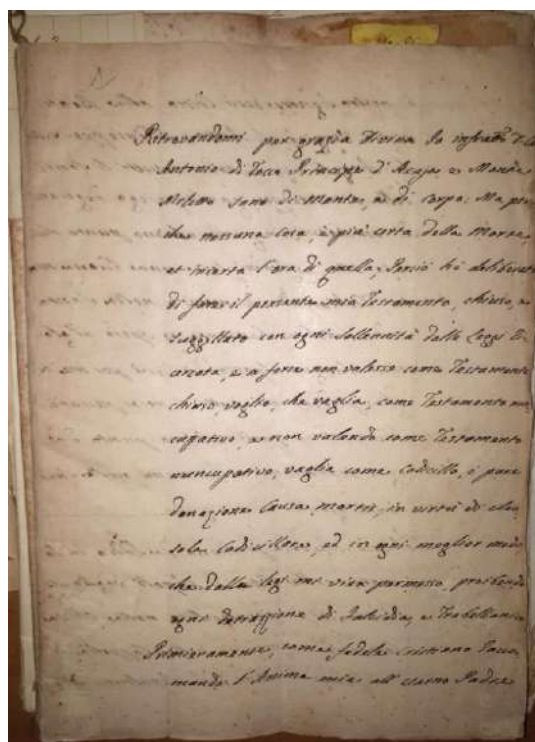 Ritrovandomi per grazia Divina Io infratto D.
Antonio di Tocco Principe d'Acaja e Monte
Miletto sano di mente, e di corpo; Ma per
che nessuna cosa, è più certa della morte,
et incerta l'ora di quella, Perciò hò deliberato
di fare il presente mio Testamento, chiuso, e
suggellato con ogni sollennità dalle Leggi
cercata, e a forse non valesse come Testamento
chiuso, voglio, che vaglia, come Testamento nun
cupativo, e non valendo come Testamento
nuncupativo, vaglia come Codicillo, ò pure
donazione causa mortis, in virtù di clau
sola Codicillare, ed in ogni meglior modo
che dalle legi mi vien permesso, proibendo
ogni detrazzione di Falcidia, e Trebellianica
Primieramente, come fedele Cristiano Racco
mando l'Anima mia all'eterno Padre